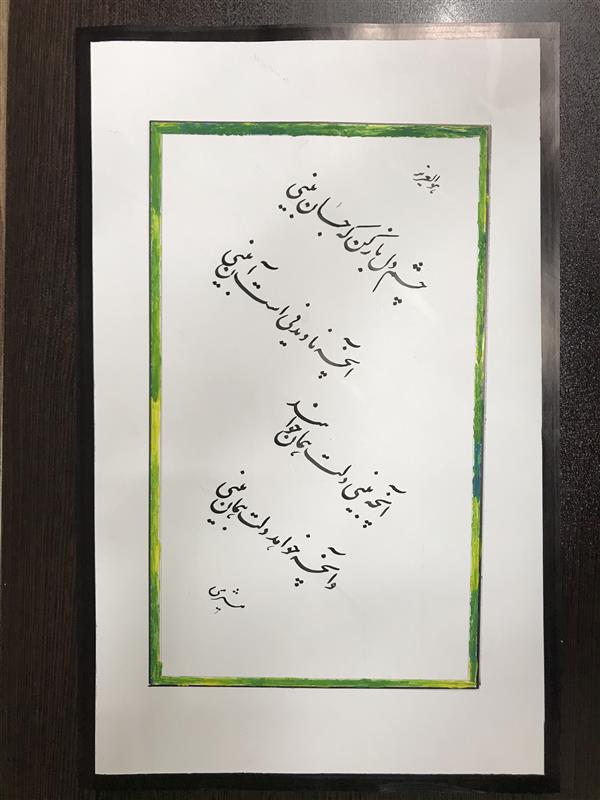 هوالعزیز
چشم دل باز کن که جان بینی
آنچه نادیدنی است آن بینی
آنچه بینی دلت همان خواهد
وآنچه خواهد دلت همان بینی